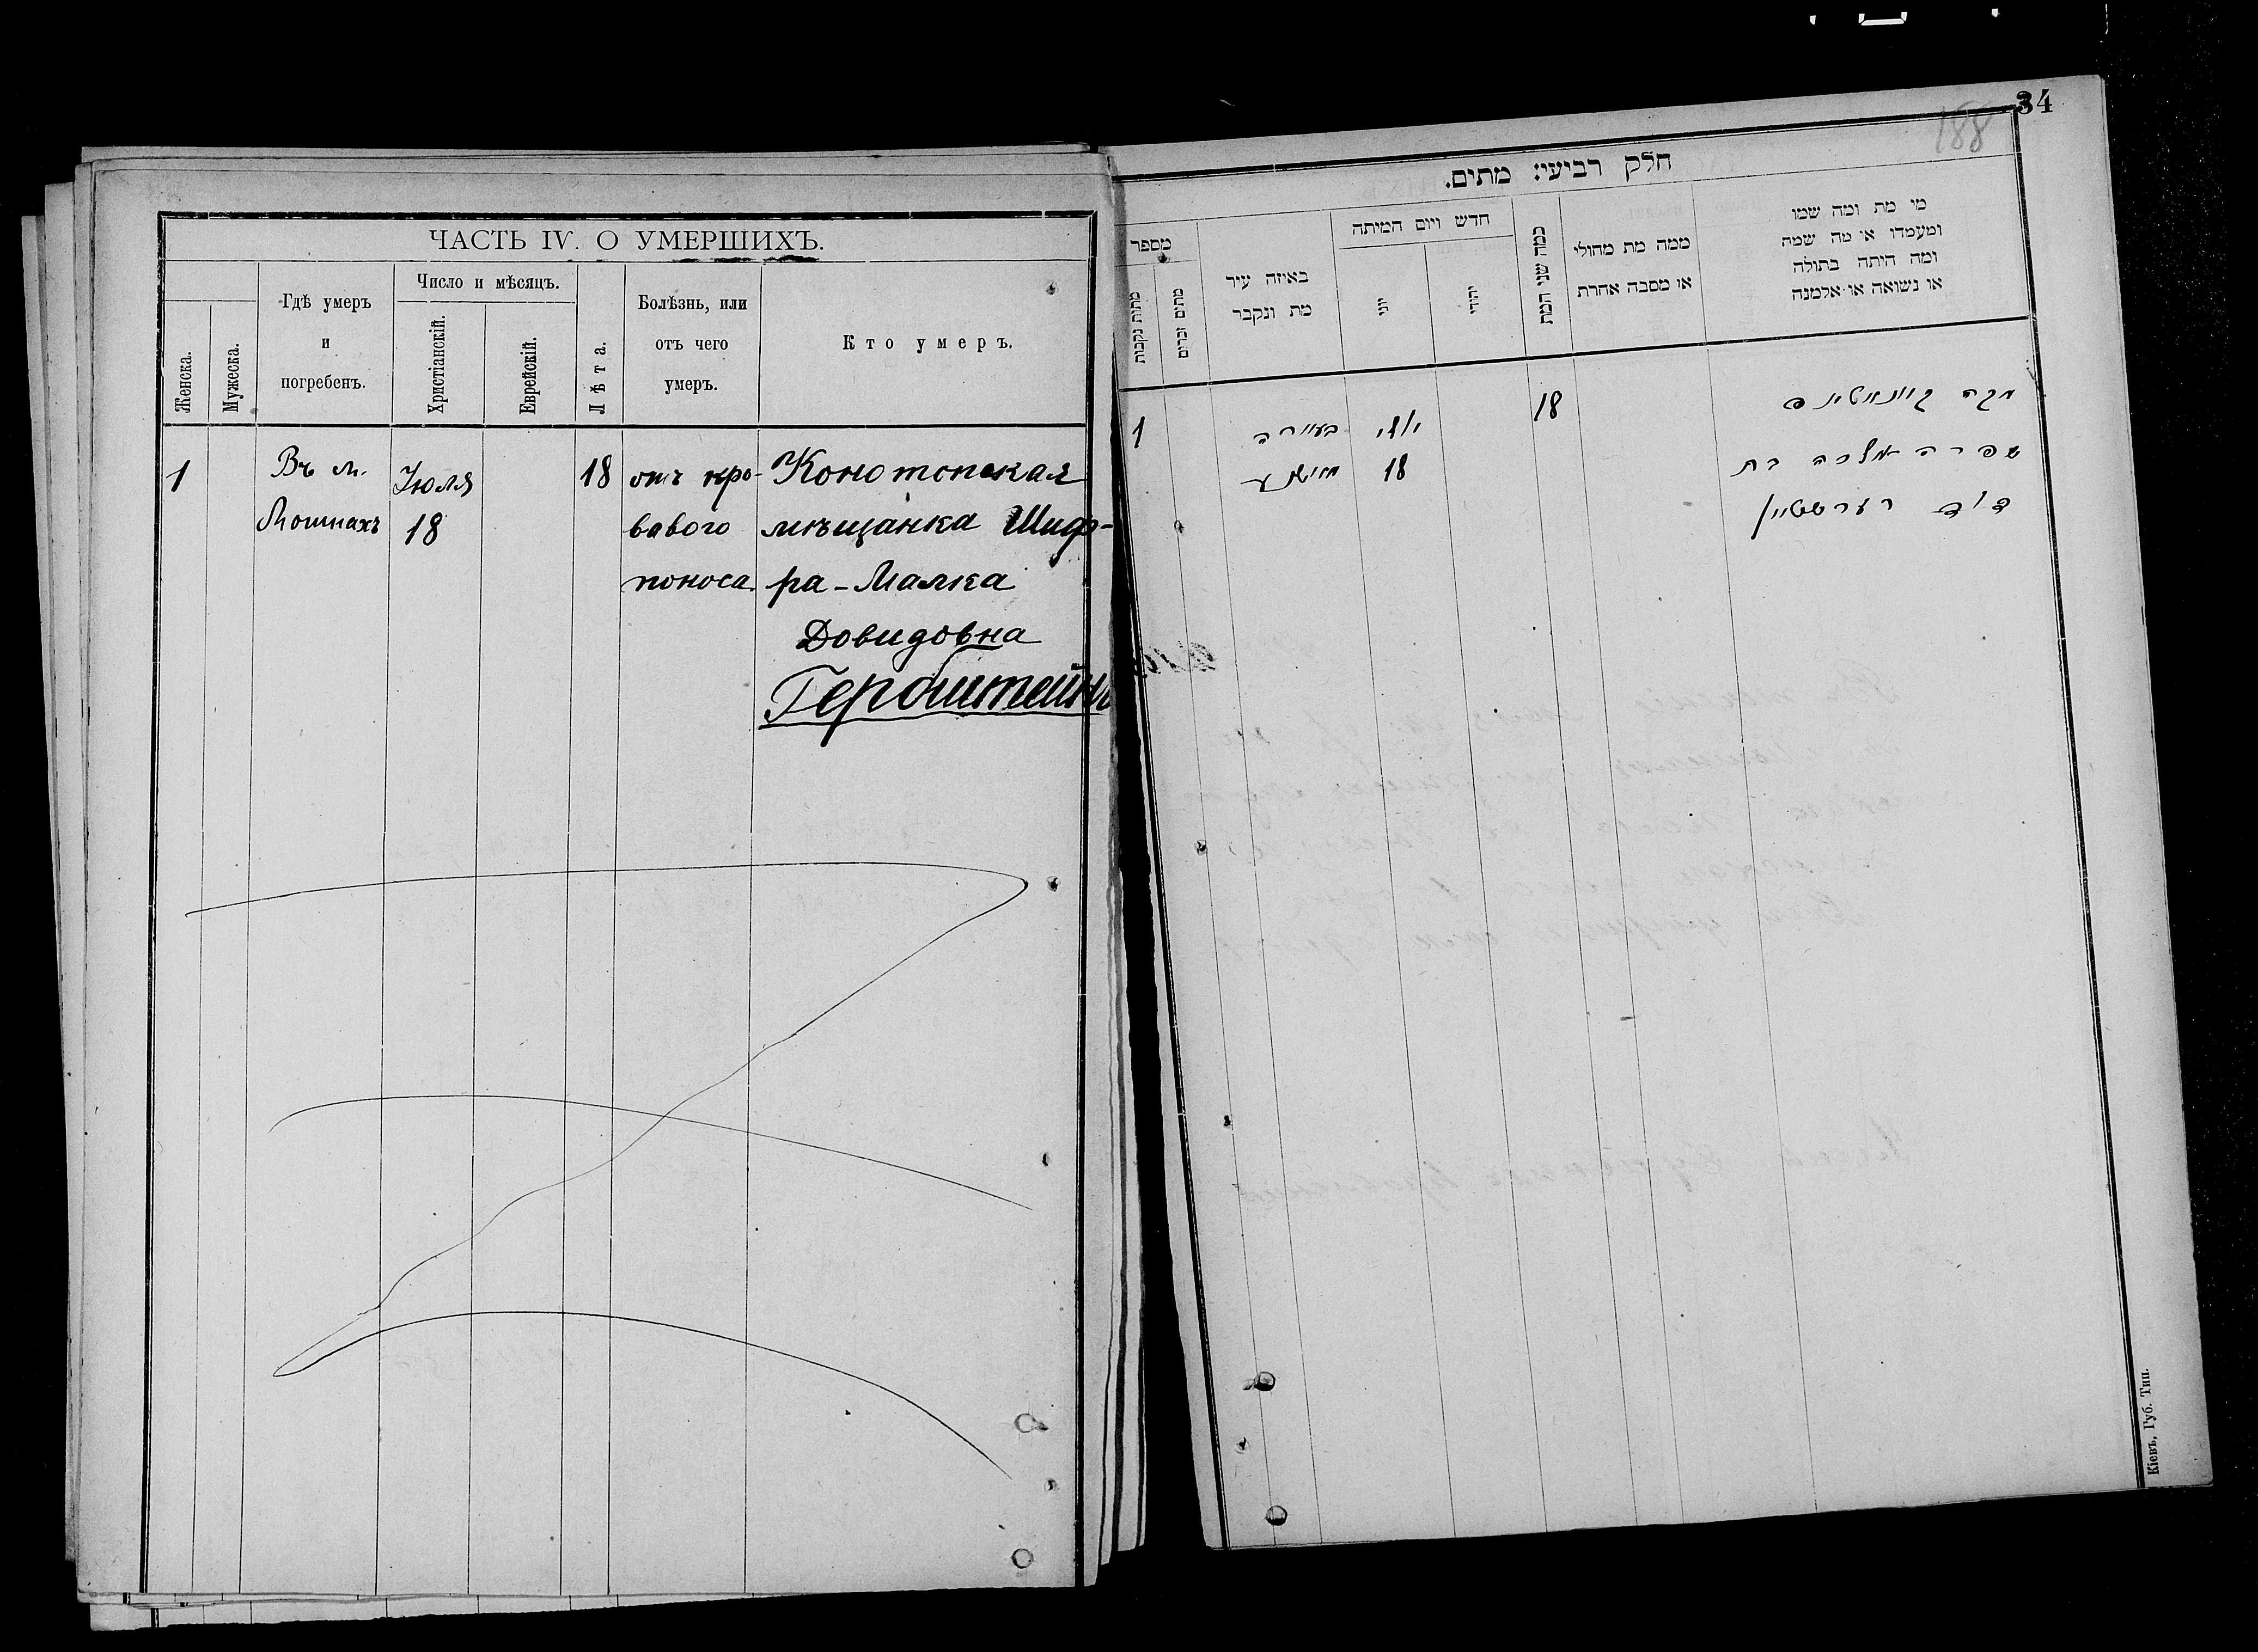 ЧАСТЬ IV. О УМЕРШИХЪ.
Женска.
Мужеска.
Гдѣ умеръ
и
погребенъ.
Число и мѣсяцъ.
Христіанскій.
Еврейскій.
Лѣта.
Болѣзнь, или
отъ чего
умеръ.
Кто умеръ.
1
Въ м.
Мошнахъ
Іюля
18
18
отъ кро-
ваваго
поноса
Конотопская
мѣщанка Шиф-
ра-Малка
Довидовна
Гербштейнъ
34
188
חלק רביעי: מתים.
מספר
מתות נקבות
מתים זכרים
באיזה עיר
מת ונקבר
חדש ויום המיתה
יוני
יהודי
כמה שני המת
ממה מת מחולי
או מסבה אחרת
מי מת ומה שמו
ומעמדו או מה שמה
ומה היתה בתולה
או נשואה או אלמנה
1
בעיירה
יולי
18
18
שפרה מלכה בת
דוד
Кіевъ, Губ. Тип.